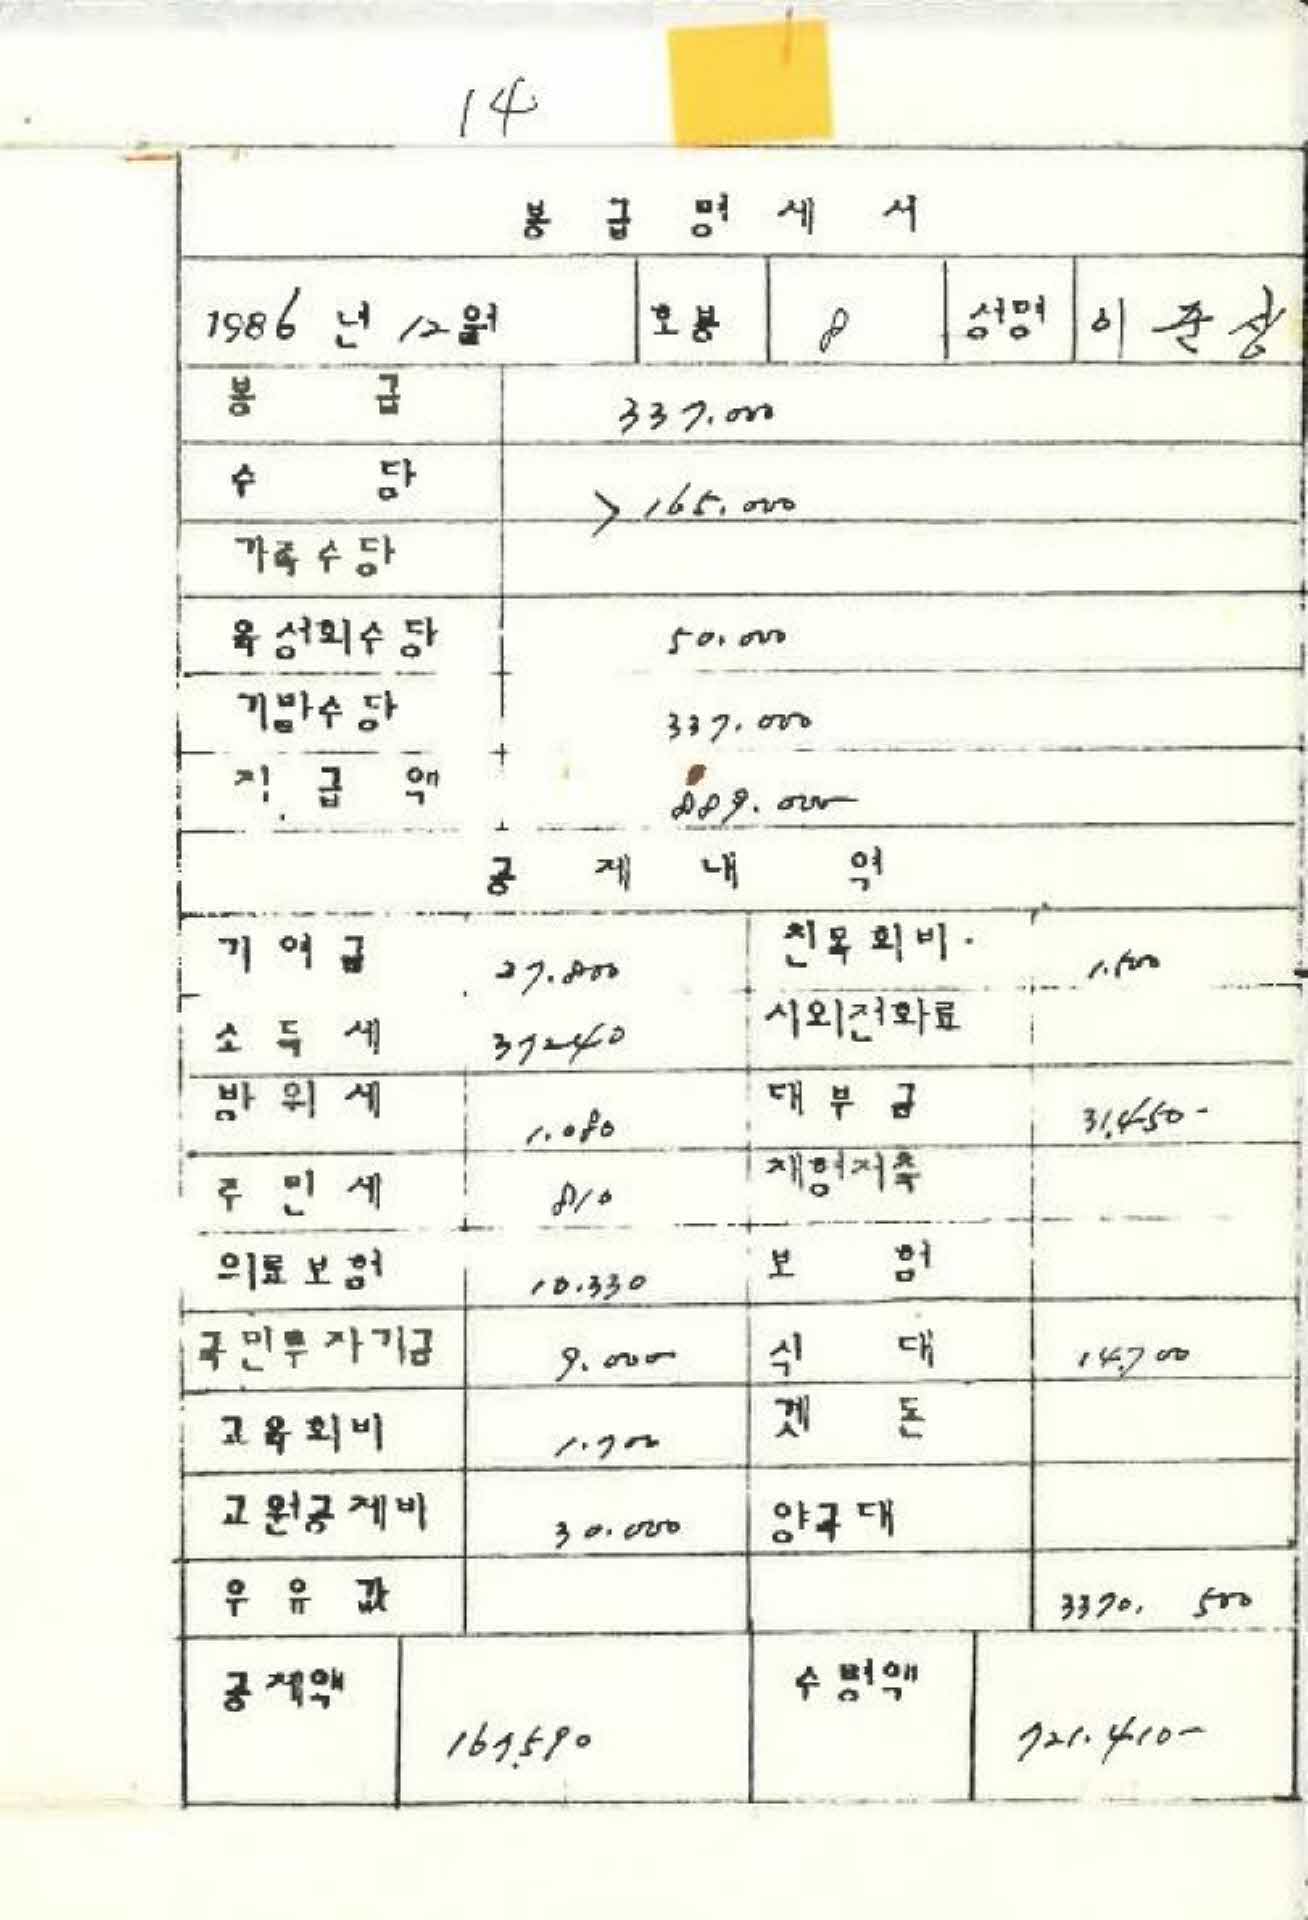 14
봉 급 명 세 서
1986 년 12월 호봉 8 성명 이 준 상
봉 급 337.000
수 당 > 165.000
가족수당
육성회수당 50.000
기말수당 337.000
지 급 액 889.000
공 제 내 역
기 여 금 27.800 친목회비. 1.500
소 득 세 37240 시외전화료
방 위 세 1.080 대 부 금 31,450-
주 민 세 810 재형저축
의료보험 10.330 보 험
국민투자기금 9.000 식 대 14.700
교육회비 1.700 곗 돈
교원공제비 30.000 양곡대
우 유 값 3370. 500
공제액 167.590 수령액 721.410-